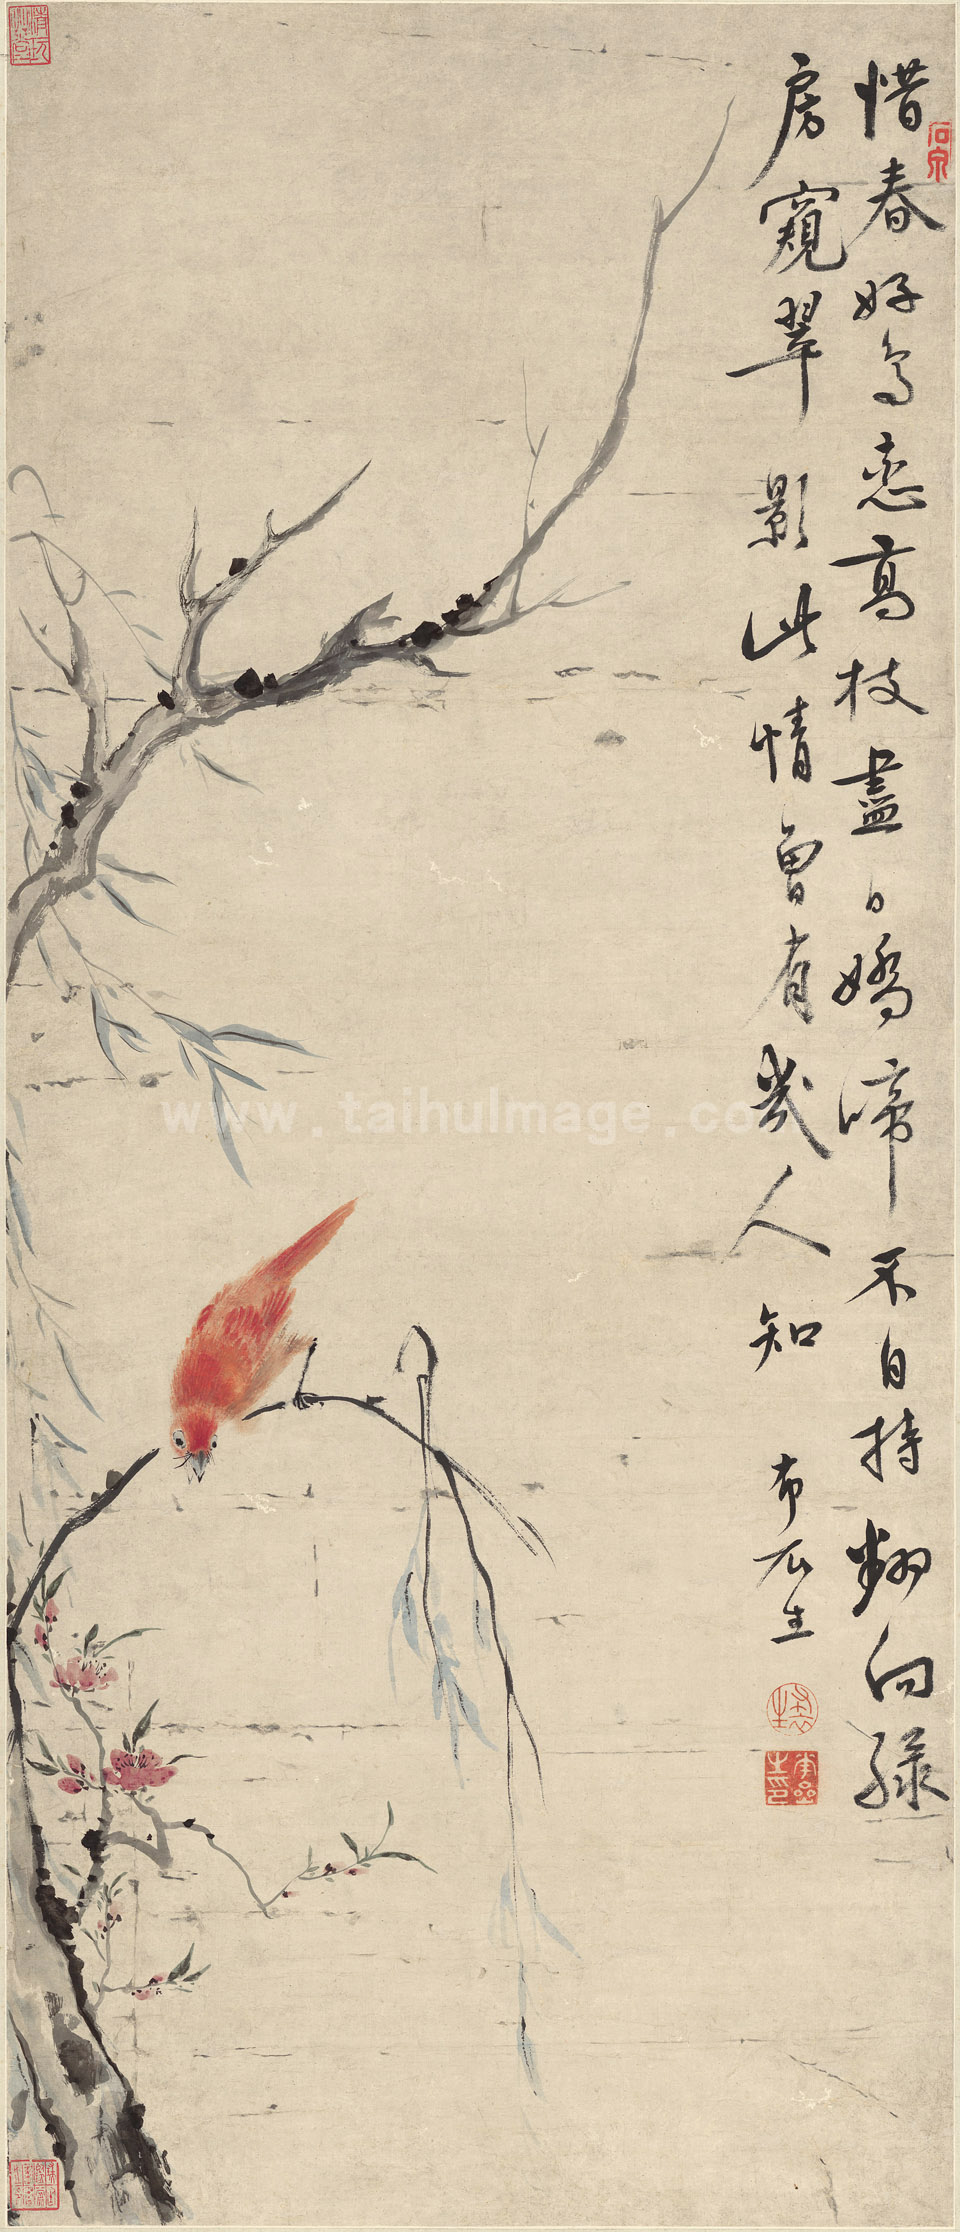 惜春好鸟恋高枝盡日嬌啼不自持翻向綠
房窺翠影此情曾有幾人知
布衣生
www.taihuImage.co